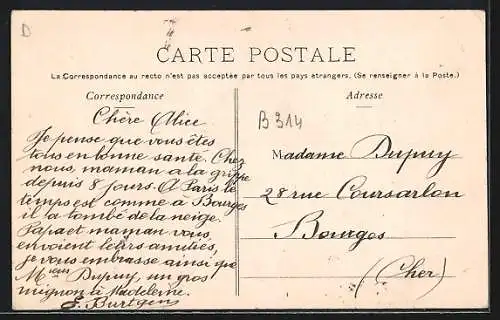 D
CARTE POSTALE
La Correspondance au recto n'est pas acceptée par tous les pays étrangers. (Se renseigner à la Poste.)
Correspondance
Chère Alice
Je pense que vous êtes
tous en bonne santé. Chez
nous, maman a la grippe
depuis 8 jours. A Paris le
temps est comme à Bourges
il a tombé de la neige.
Papa et maman vous
envoient leurs amitiés,
je vous embrasse ainsi que
Mieurs Dupuy, un gros
mignon à Madeleine.
S. Burtgens
Adresse
B 314
Madame Dupuy
28 rue Coursarlon
Bourges
(Cher)